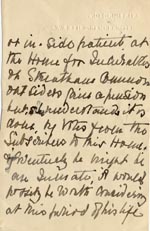 or in-side patient at
the Home for Incurables
at Streatham Common
out siders have a pension
but I understand it is
done by votes from the
Subscribers to this Home.
Eventually he might be
an Inmate. It would
be worth considering
at this period of his life